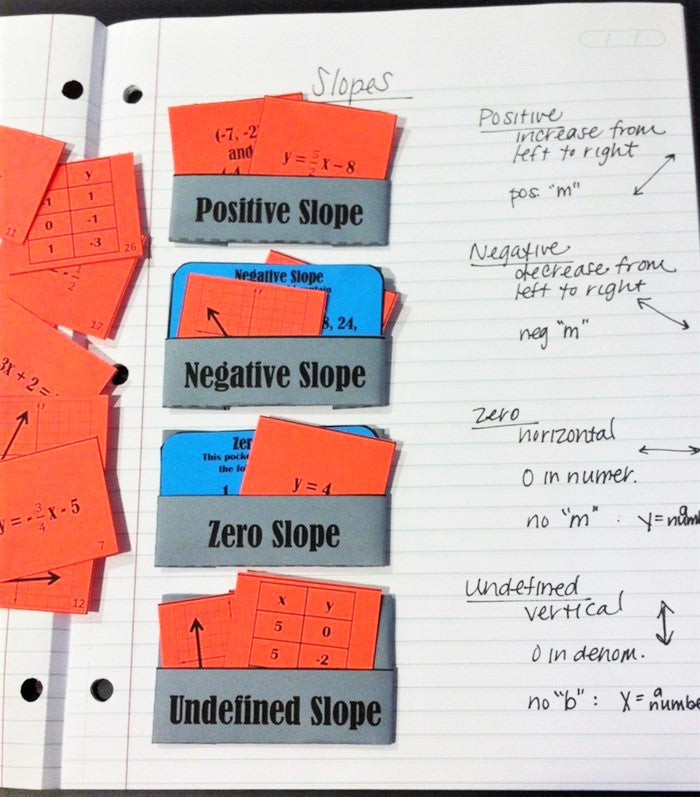 Slopes
(-7, -2
and
y = 5/2 x - 8
Positive Slope
Positive
increase from
left to right
pos "m"
y
1
0 -1
1 -3
26
11
1/2
17
Negative Slope
8, 24,
Negative Slope
Negative
decrease from
left to right
neg "m"
3x + 2 =
y = -3/4 x - 5
7
12
Zer
This pocke
the fo
1
y = 4
Zero Slope
Zero
horizontal
0 in numer.
no "m" : y = a num
x y
5 0
5 -2
Undefined Slope
Undefined
vertical
0 in denom.
no "b" : x = a numbe